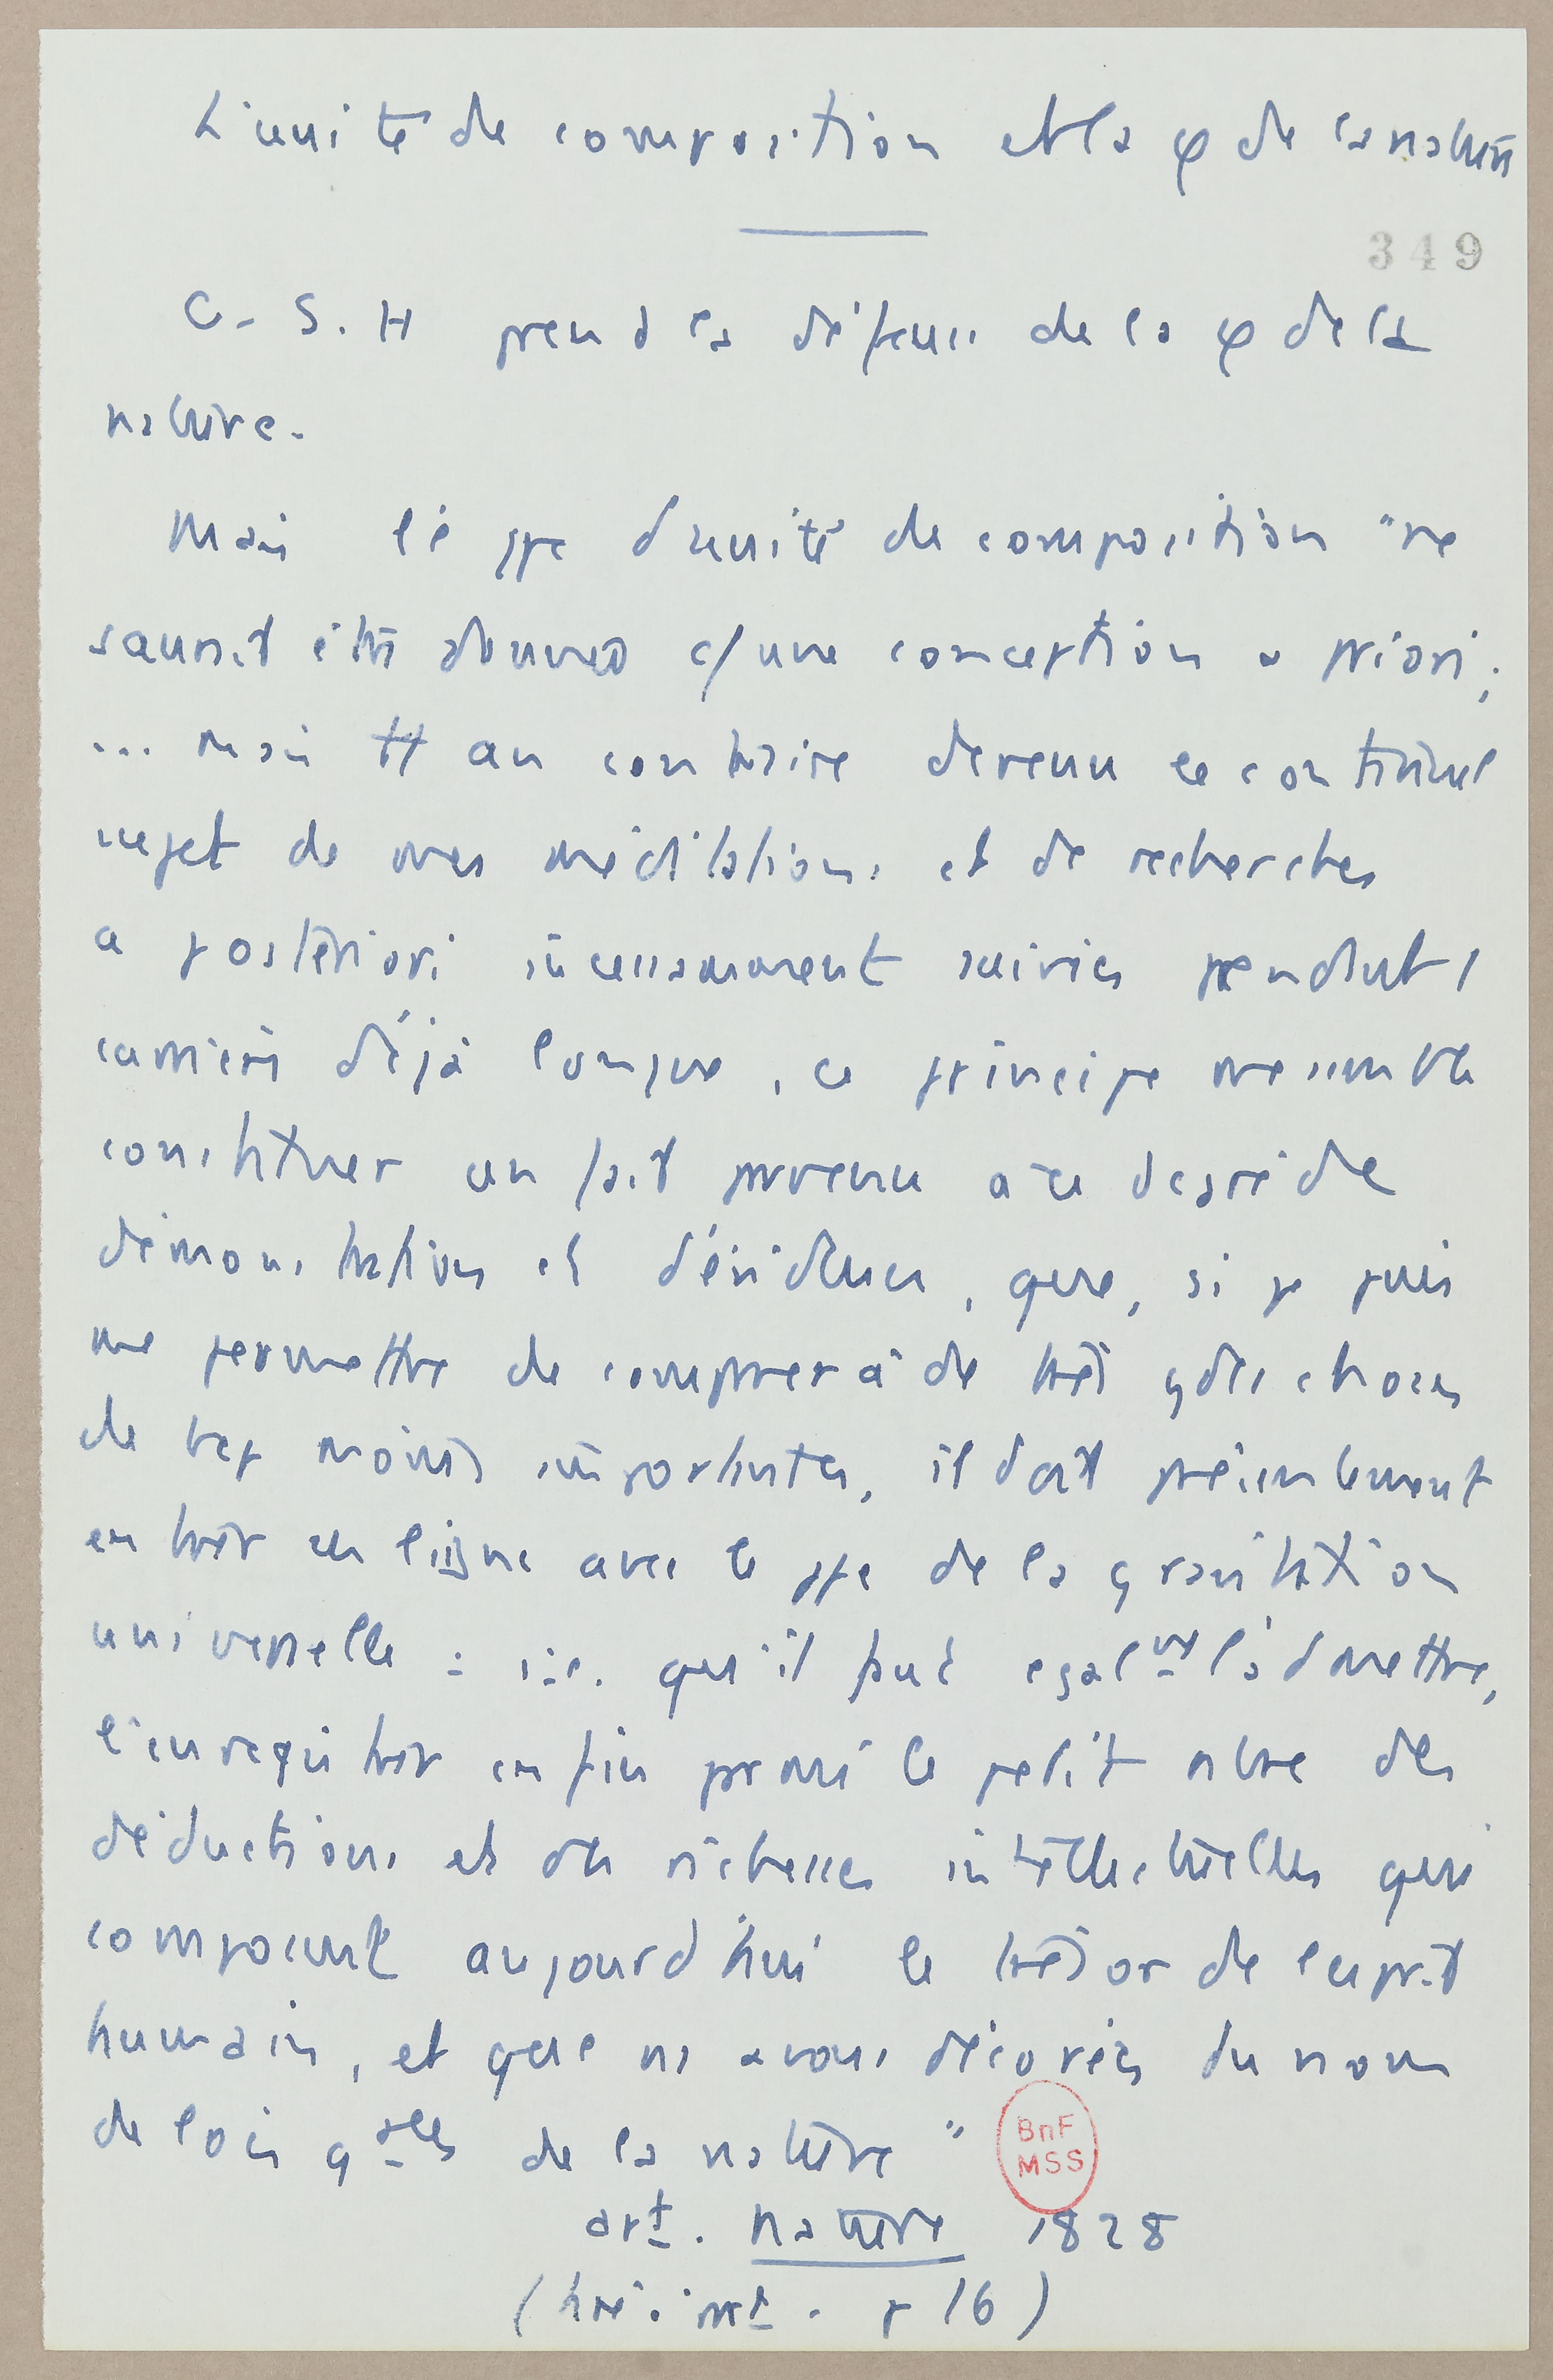 L'unité de composition et la φ de la nature
349
G. S. H prend la défense de la φ de la
nature.
Mais le ppe d'unité de composition "ne
saurait être donnée c/ une conception a priori ;
... mais au contraire devenu le continuel
sujet de mes méditations et de recherches
a posteriori incessamment suivies pendant 1
carrière déjà longue, ce principe me semble
constituer un fait parvenu à ce degré de
démonstration et d'évidence, que, si je puis
me permettre de comparer à de très gdes choses
de bcp moins importantes, il doit présentement
entrer en ligne avec le ppe de la gravitation
universelle : i.e. qu'il faut egalmt l'admettre,
l'enregistrer enfin parmi le petit nbre des
déductions et des richesses intellectuelles qui
composent aujourd'hui le trésor de l'esprit
humain, et que ns avons décorées du nom
de lois gales de la nature "
BnF
MSS
art. Nature 1828
( p 16 )